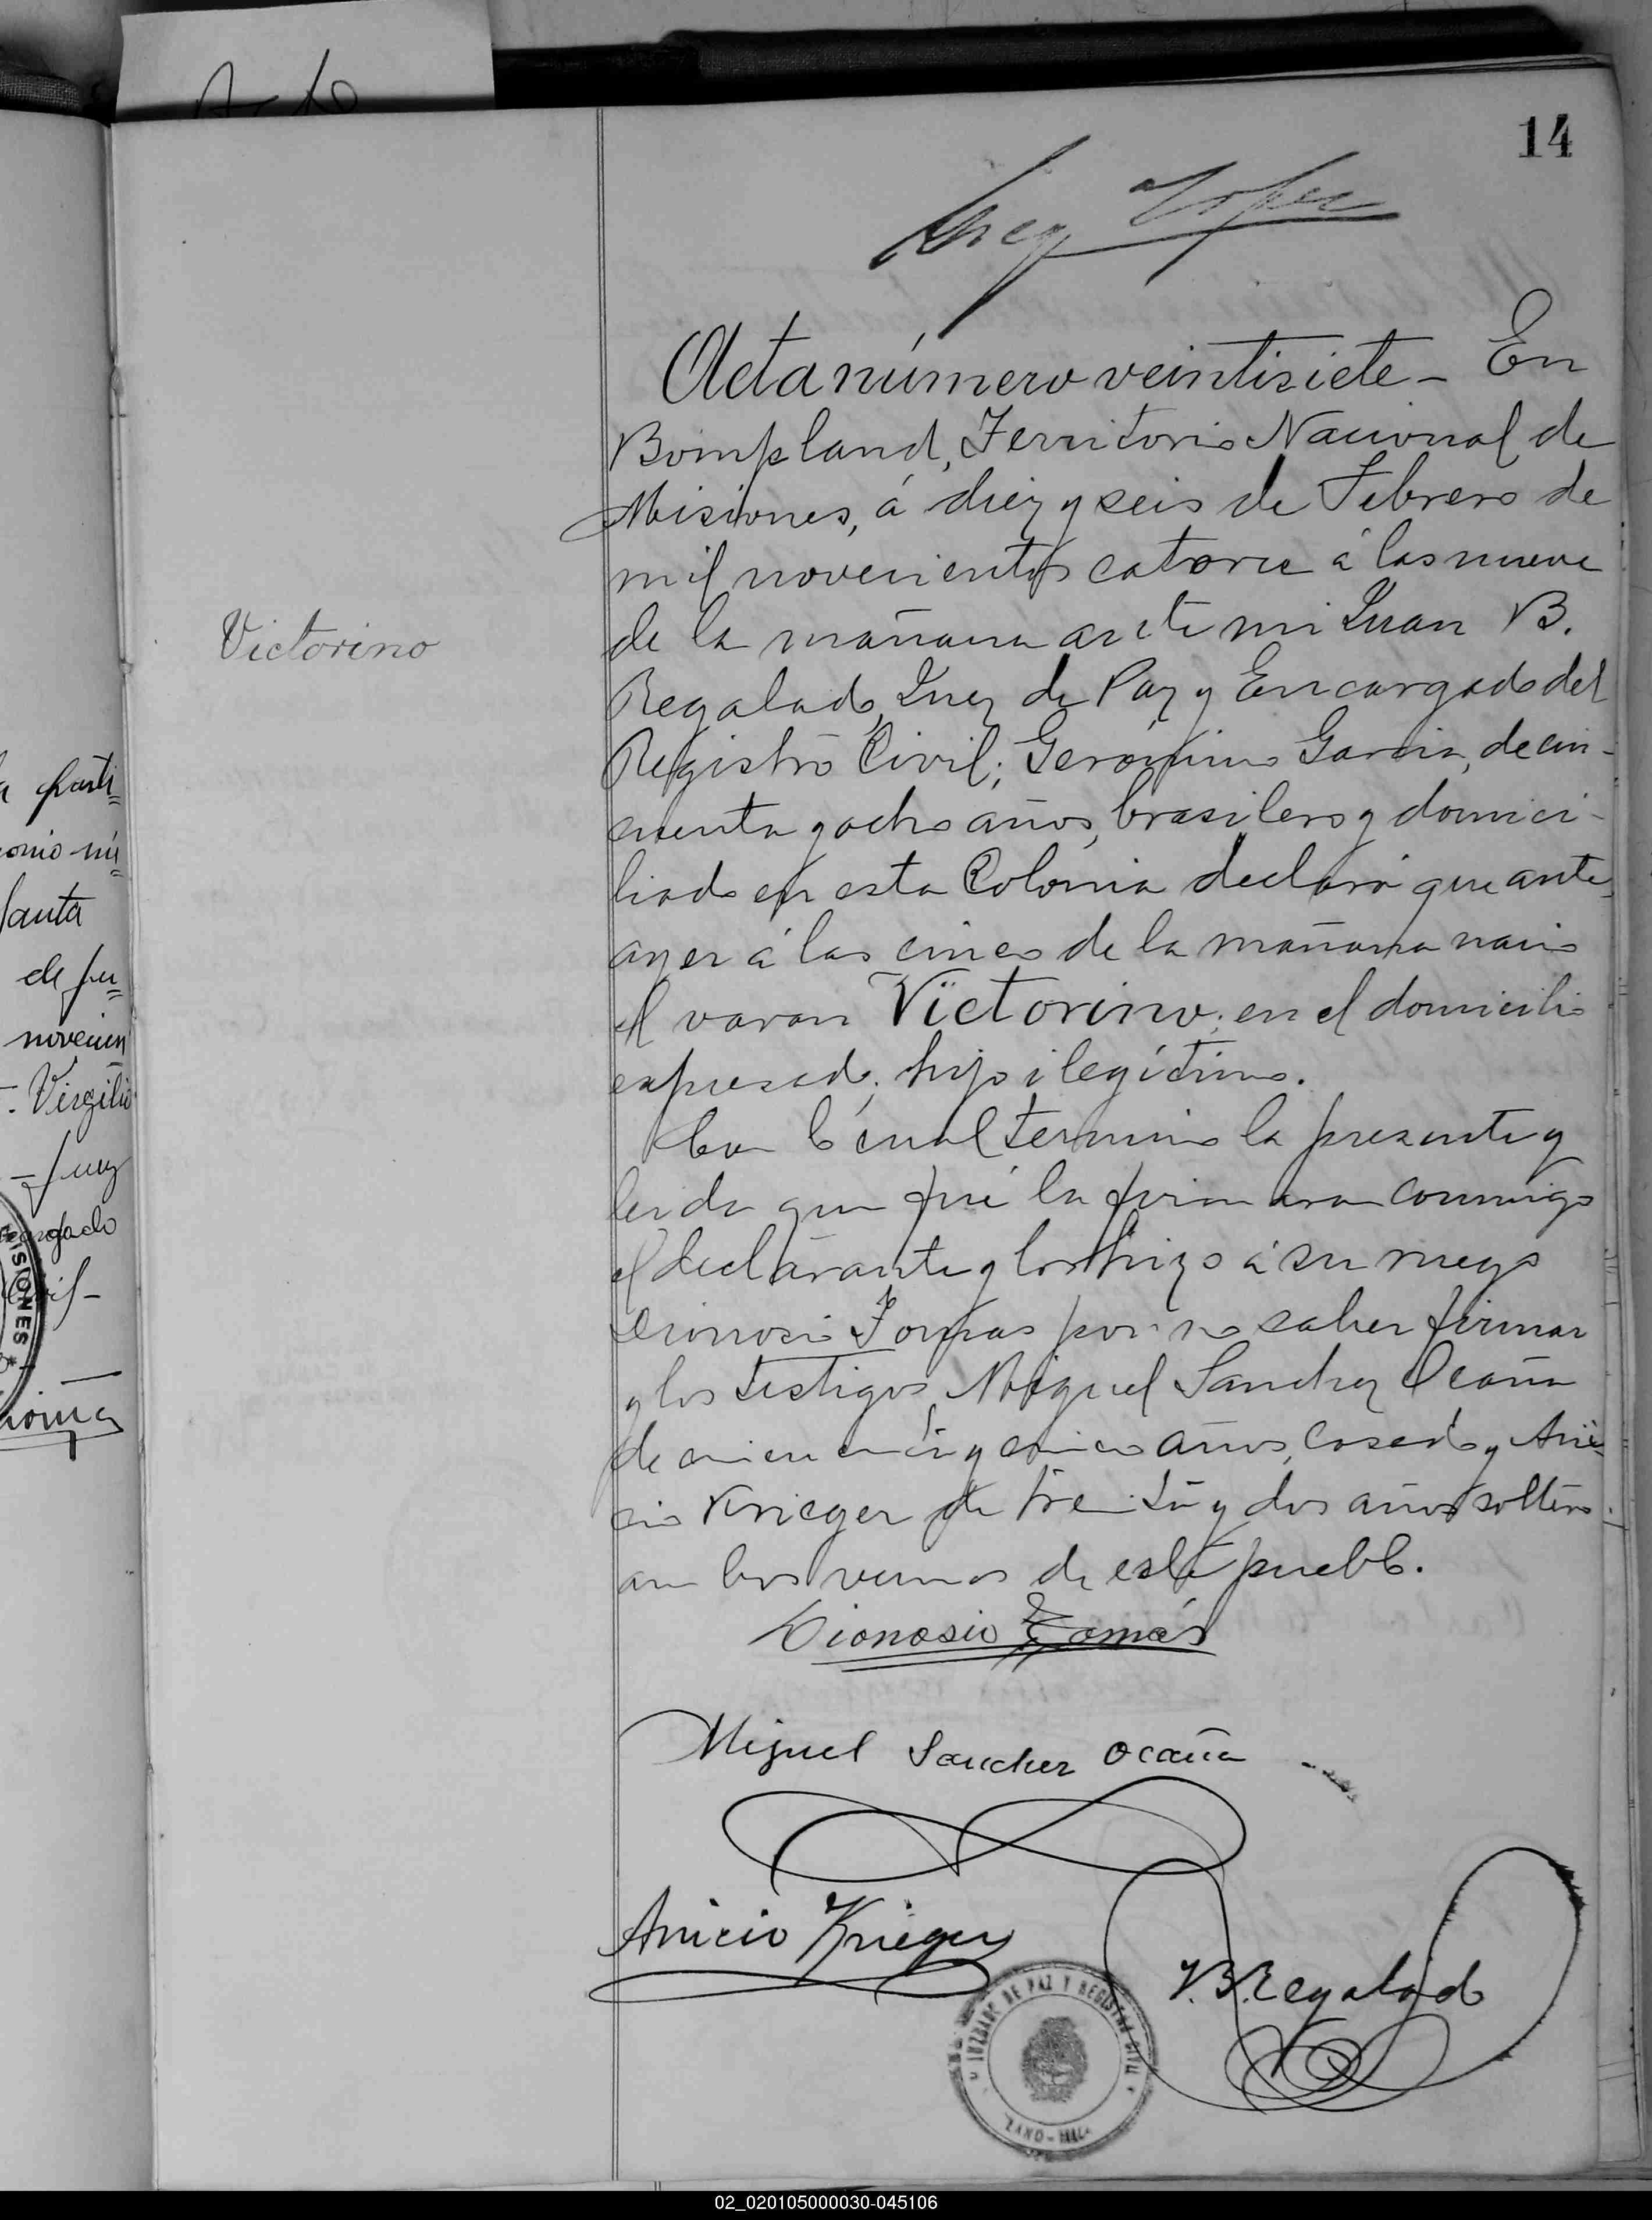 14
Lopez
Acta número veintisiete - En
Bompland, Territorio Nacional de
Misiones, á diez y seis de Febrero de
mil novecientos catorce á las nueve
de la mañana ante mi Juan B.
Victorino
Regalado, Juez de Paz y Encargado del
Registro Civil; Gerónimo Garcia, de cin-
cuenta y ocho años, brasilero y domici-
liado en esta Colonia declaró que ante
ayer á las cinco de la mañana nació
el varon Victorino; en el domicilio
expresado; hijo ilegítimo.
Con lo cual termino la presente y
leida que fué la firmaron conmigo
el declarante y los hizo á su ruego
Dionosio Tomas por no saber firmar
y los testigos, Miguel Sanchez Ocaña
de cincuenta y cinco años, casado y Ani-
cio Krieger de treinta y dos años soltero
ambos vecinos de este pueblo.
Dionosio Tomás
Miguel Sanchez Ocaña
Anicio Krieger
J. B. Regalado
JUZGADO DE PAZ Y REGISTRO CIVIL
parti
nú
Santa
de fe
novecien
Virgilio
Juez
MISIONES
02_020105000030-045106